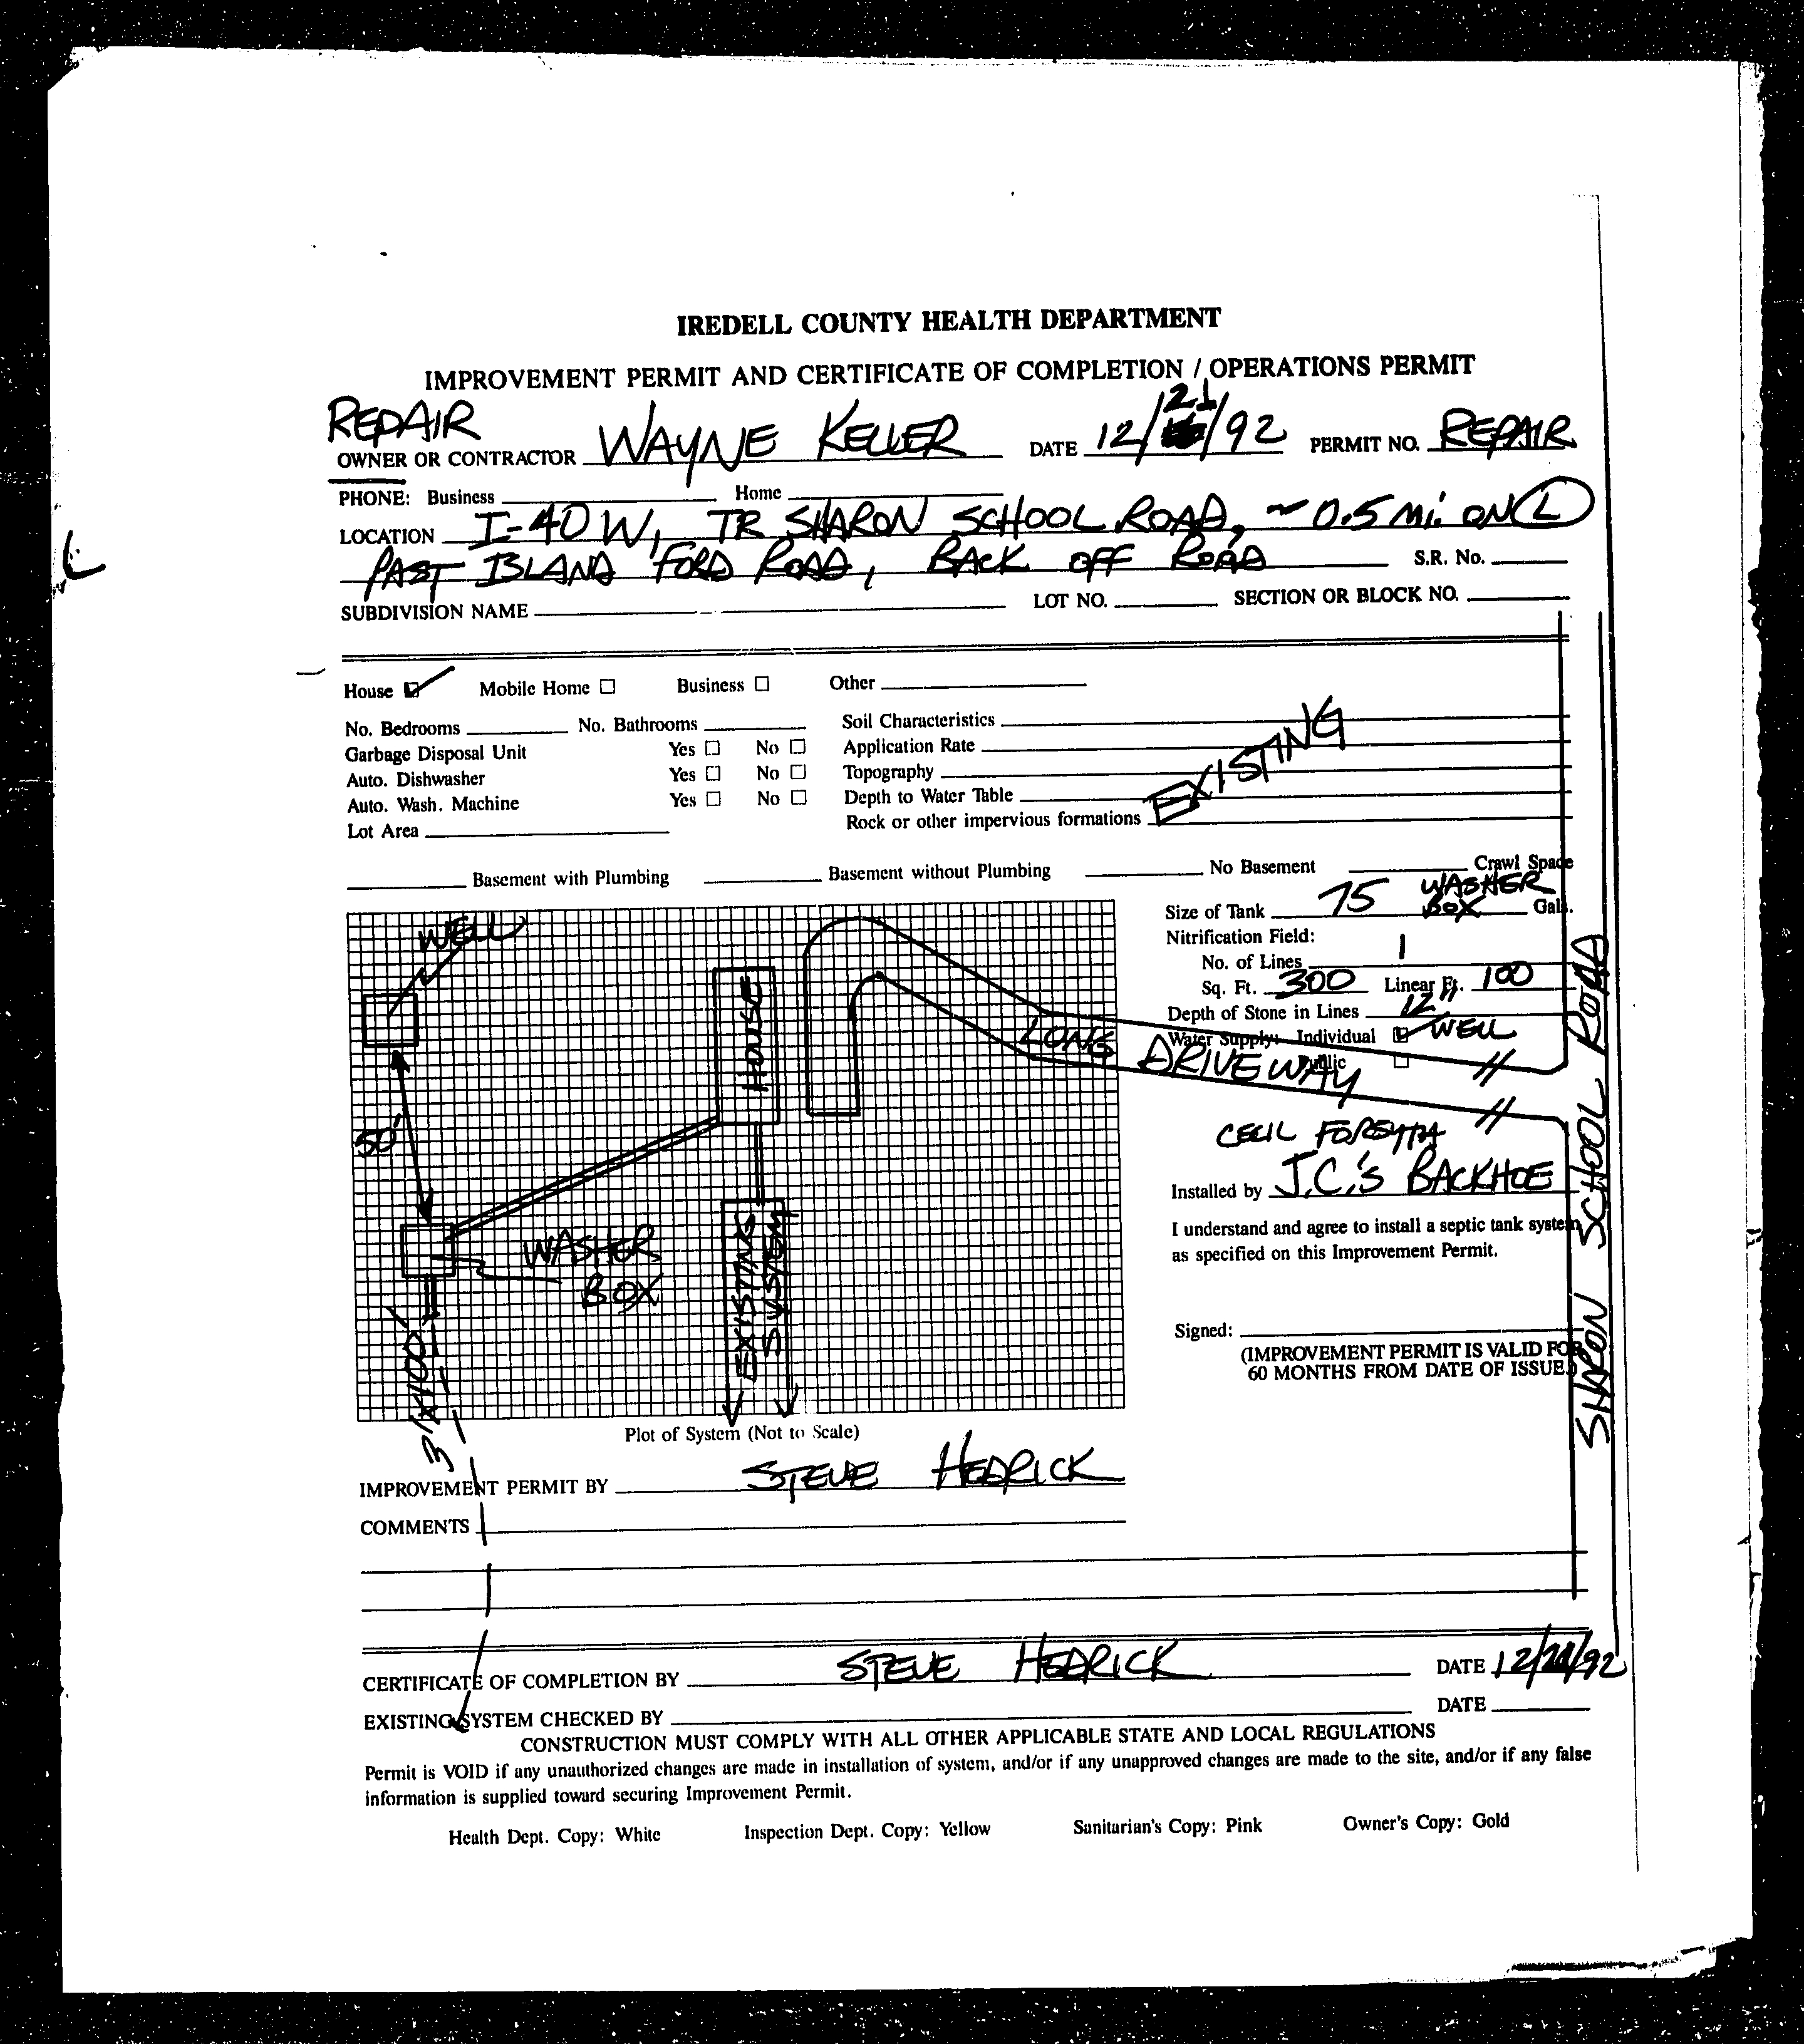 IREDELL COUNTY HEALTH DEPARTMENT
IMPROVEMENT PERMIT AND CERTIFICATE OF COMPLETION / OPERATIONS PERMIT
REPAIR
OWNER OR CONTRACTOR WAYNE KELLER DATE 12/21/92 PERMIT NO. REPAIR
PHONE: Business Home
LOCATION I-40 W, TR SHARON SCHOOL ROAD, ~0.5 mi. ON L
PAST ISLAND FORD ROAD, BACK OFF ROAD S.R. No.
SUBDIVISION NAME LOT NO. SECTION OR BLOCK NO.
House Mobile Home Business Other
No. Bedrooms No. Bathrooms Soil Characteristics
Garbage Disposal Unit Yes No Application Rate
Auto. Dishwasher Yes No Topography
Auto. Wash. Machine Yes No Depth to Water Table
Lot Area Rock or other impervious formations
EXISTING
Basement with Plumbing Basement without Plumbing No Basement Crawl Space
Size of Tank 75 WASHER BOX Gals.
Nitrification Field:
No. of Lines 1
Sq. Ft. 300 Linear Ft. 100
Depth of Stone in Lines 12"
Water Supply: Individual WELL
Public
WELL
HOUSE
LONG DRIVEWAY
50'
WASHER
BOX
EXISTING
SYSTEM
3'X100'
SHARON SCHOOL ROAD
CECIL FORSYTH
Installed by J.C.'S BACKHOE
I understand and agree to install a septic tank system
as specified on this Improvement Permit.
Signed:
(IMPROVEMENT PERMIT IS VALID FOR
60 MONTHS FROM DATE OF ISSUE.)
Plot of System (Not to Scale)
IMPROVEMENT PERMIT BY STEVE HEDRICK
COMMENTS
CERTIFICATE OF COMPLETION BY STEVE HEDRICK DATE 12/21/92
EXISTING SYSTEM CHECKED BY DATE
CONSTRUCTION MUST COMPLY WITH ALL OTHER APPLICABLE STATE AND LOCAL REGULATIONS
Permit is VOID if any unauthorized changes are made in installation of system, and/or if any unapproved changes are made to the site, and/or if any false
information is supplied toward securing Improvement Permit.
Health Dept. Copy: White Inspection Dept. Copy: Yellow Sanitarian's Copy: Pink Owner's Copy: Gold